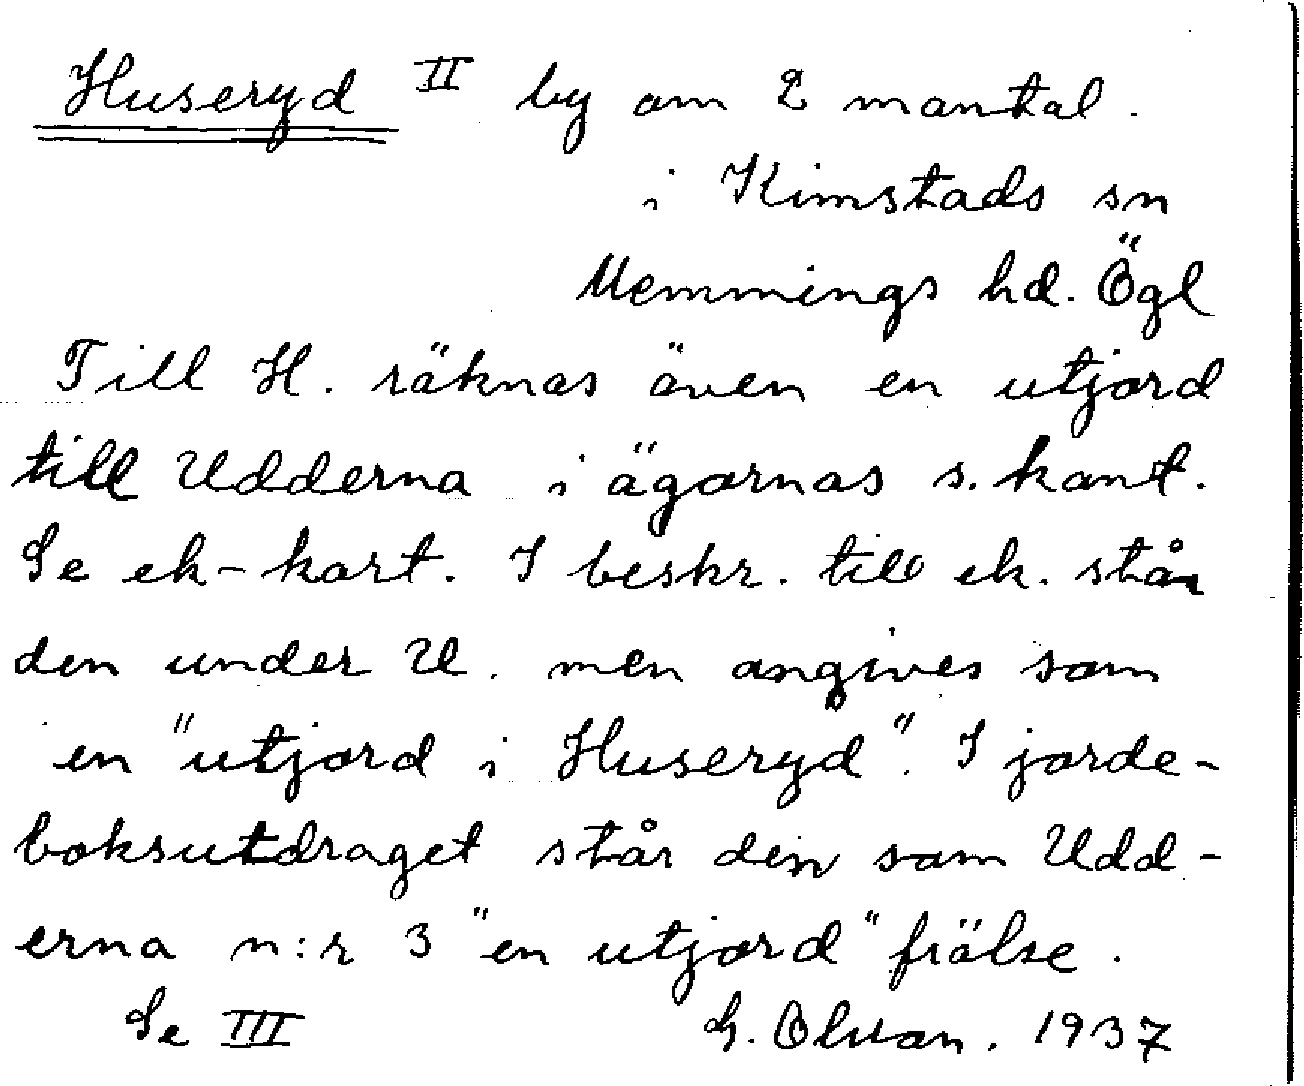 Huseryd II by om 2 mantal.
i Kimstads sn
Memmings hd. Ögl
Till H. räknas även en utjord
till Udderna i ägornas s. kant.
Se ek-kart. I beskr. till ek. står
den under U. men angives som
en "utjord i Huseryd". I jorde-
boksutdraget står den som Udd-
erna n:r 3 "en utjord" frälse.
Se III G. 1937